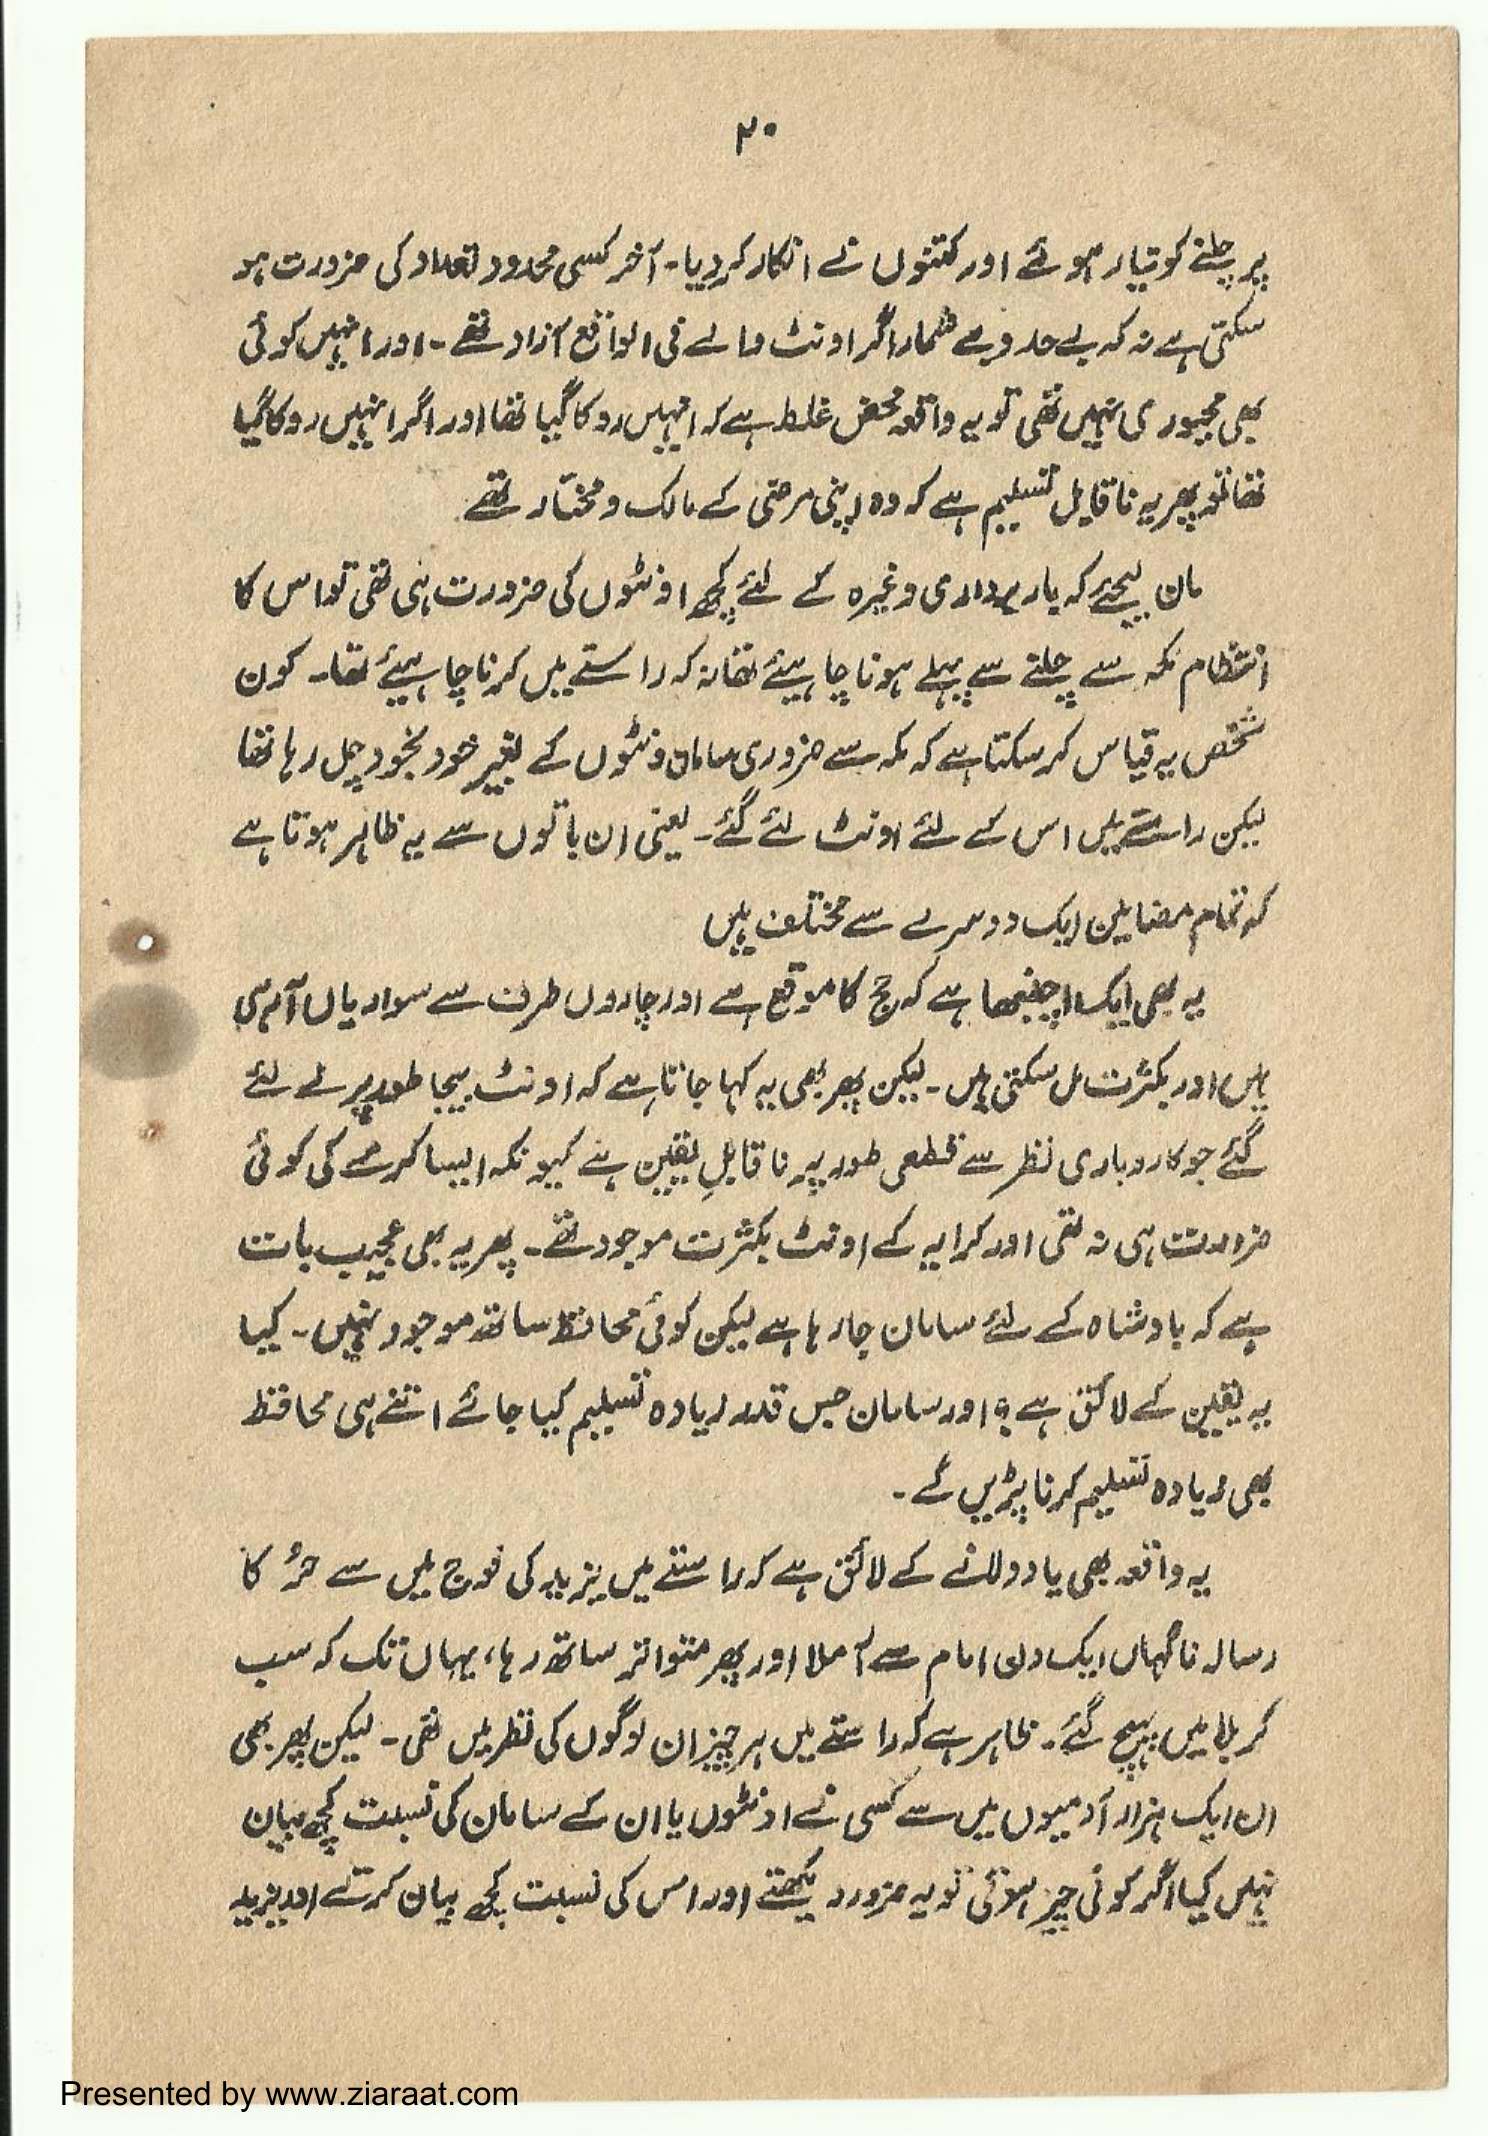 ۲۰
پر چلنے کو تیار ہوئے اور کتنوں نے انکار کردیا۔ آخر کسی محدود تعداد کی ضرورت ہو
سکتی ہے نہ کہ بے حد و بے شمار اگر اونٹ والے فی الواقع آزاد تھے۔ اور انہیں کوئی
بھی مجبوری نہیں تھی تو یہ واقعہ محض غلط ہے کہ انہیں روکا گیا تھا اور اگر انہیں روکا گیا
تھا تو پھر یہ ناقابل تسلیم ہے کہ وہ اپنی مرضی کے مالک و مختار تھے
مان لیجئے کہ باربرداری وغیرہ کے لئے کچھ اونٹوں کی ضرورت ہی تھی تو اس کا
انتظام مکہ سے چلنے سے پہلے ہونا چاہیئے تھا نہ کہ راستے میں کرنا چاہیئے تھا۔ کون
شخص یہ قیاس کرسکتا ہے کہ مکہ سے ضروری سامان ونٹوں کے بغیر خود بخود چل رہا تھا
لیکن راستے میں اس کے لئے اونٹ لئے گئے۔ یعنی ان باتوں سے یہ ظاہر ہوتا ہے
کہ تمام مضامین ایک دوسرے سے مختلف ہیں
یہ بھی ایک اچنبھا ہے کہ حج کا موقع ہے اور چاروں طرف سے سواریاں آرہی
ہیں اور بکثرت مل سکتی ہیں۔ لیکن پھر بھی یہ کہا جاتا ہے کہ اونٹ بیجا طور پر لے لئے
گئے جو کاروباری نظر سے قطعی طور پر ناقابلِ یقین ہے کیونکہ ایسا کرنے کی کوئی
ضرورت ہی نہ تھی اور کرایہ کے اونٹ بکثرت موجود تھے۔ پھر یہ بھی عجیب بات
ہے کہ بادشاہ کے لئے سامان جارہا ہے لیکن کوئی محافظ ساتھ موجود نہیں۔ کیا
یہ یقین کے لائق ہے؟ اور سامان جس قدر زیادہ تسلیم کیا جائے اتنے ہی محافظ
بھی زیادہ تسلیم کرنا پڑیں گے۔
یہ واقعہ بھی یاد دلانے کے لائق ہے کہ راستے میں یزید کی فوج میں سے حُر کا
رسالہ ناگہاں ایک دن امام سے آملا اور پھر متواتر ساتھ رہا، یہاں تک کہ سب
کربلا میں پہنچ گئے۔ ظاہر ہے کہ راستے میں ہر چیز ان لوگوں کی نظر میں تھی۔ لیکن پھر بھی
ان ایک ہزار آدمیوں میں سے کسی نے اونٹوں یا ان کے سامان کی نسبت کچھ بیان
نہیں کیا اگر کوئی چیز ہوتی تو یہ ضرور دیکھتے اور اس کی نسبت کچھ بیان کرتے اور یزید
Presented by www.ziaraat.com